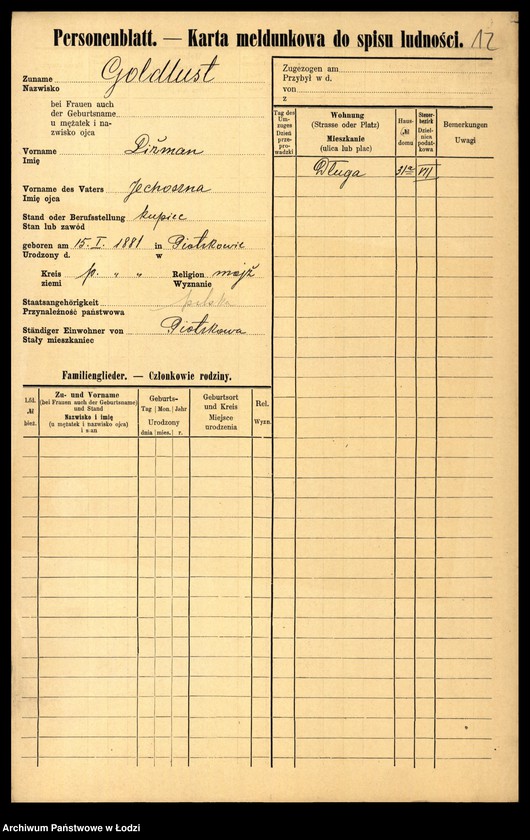 Personenblatt. — Karta meldunkowa do spisu ludności. 12
Zuname Goldlust
Nazwisko
bei Frauen auch
der Geburtsname
u mężatek i na-
zwisko ojca
Vorname Dizman
Imię
Vorname des Vaters Jechoszna
Imię ojca
Stand oder Berufsstellung kupiec
Stan lub zawód
geboren am 15. I. 1881 in Piotrkowie
Urodzony d. w
Kreis p. " " Religion mojż
ziemi Wyznanie
Staatsangehörigkeit polska
Przynależność państwowa
Ständiger Einwohner von Piotrkowa
Stały mieszkaniec
Zugezogen am
Przybył w d.
von
z
Tag des Um-
zuges
Dzień
prze-
prowadzki
Wohnung
(Strasse oder Platz)
Mieszkanie
(ulica lub plac)
Haus-
№
domu
Steuer-
bezirk
Dziel-
nica
podat-
kowa
Bemerkungen
Uwagi
Długa 31a VII
Familienglieder. — Członkowie rodziny.
Lfd.
№
bież.
Zu- und Vorname
(bei Frauen auch der Geburtsname)
und Stand
Nazwisko i imię
(u mężatek i nazwisko ojca)
i stan
Geburts-
Tag Mon. Jahr
Urodzony
dnia mies. r.
Geburtsort
und Kreis
Miejsce
urodzenia
Rel.
Wyzn.
Archiwum Państwowe w Łodzi